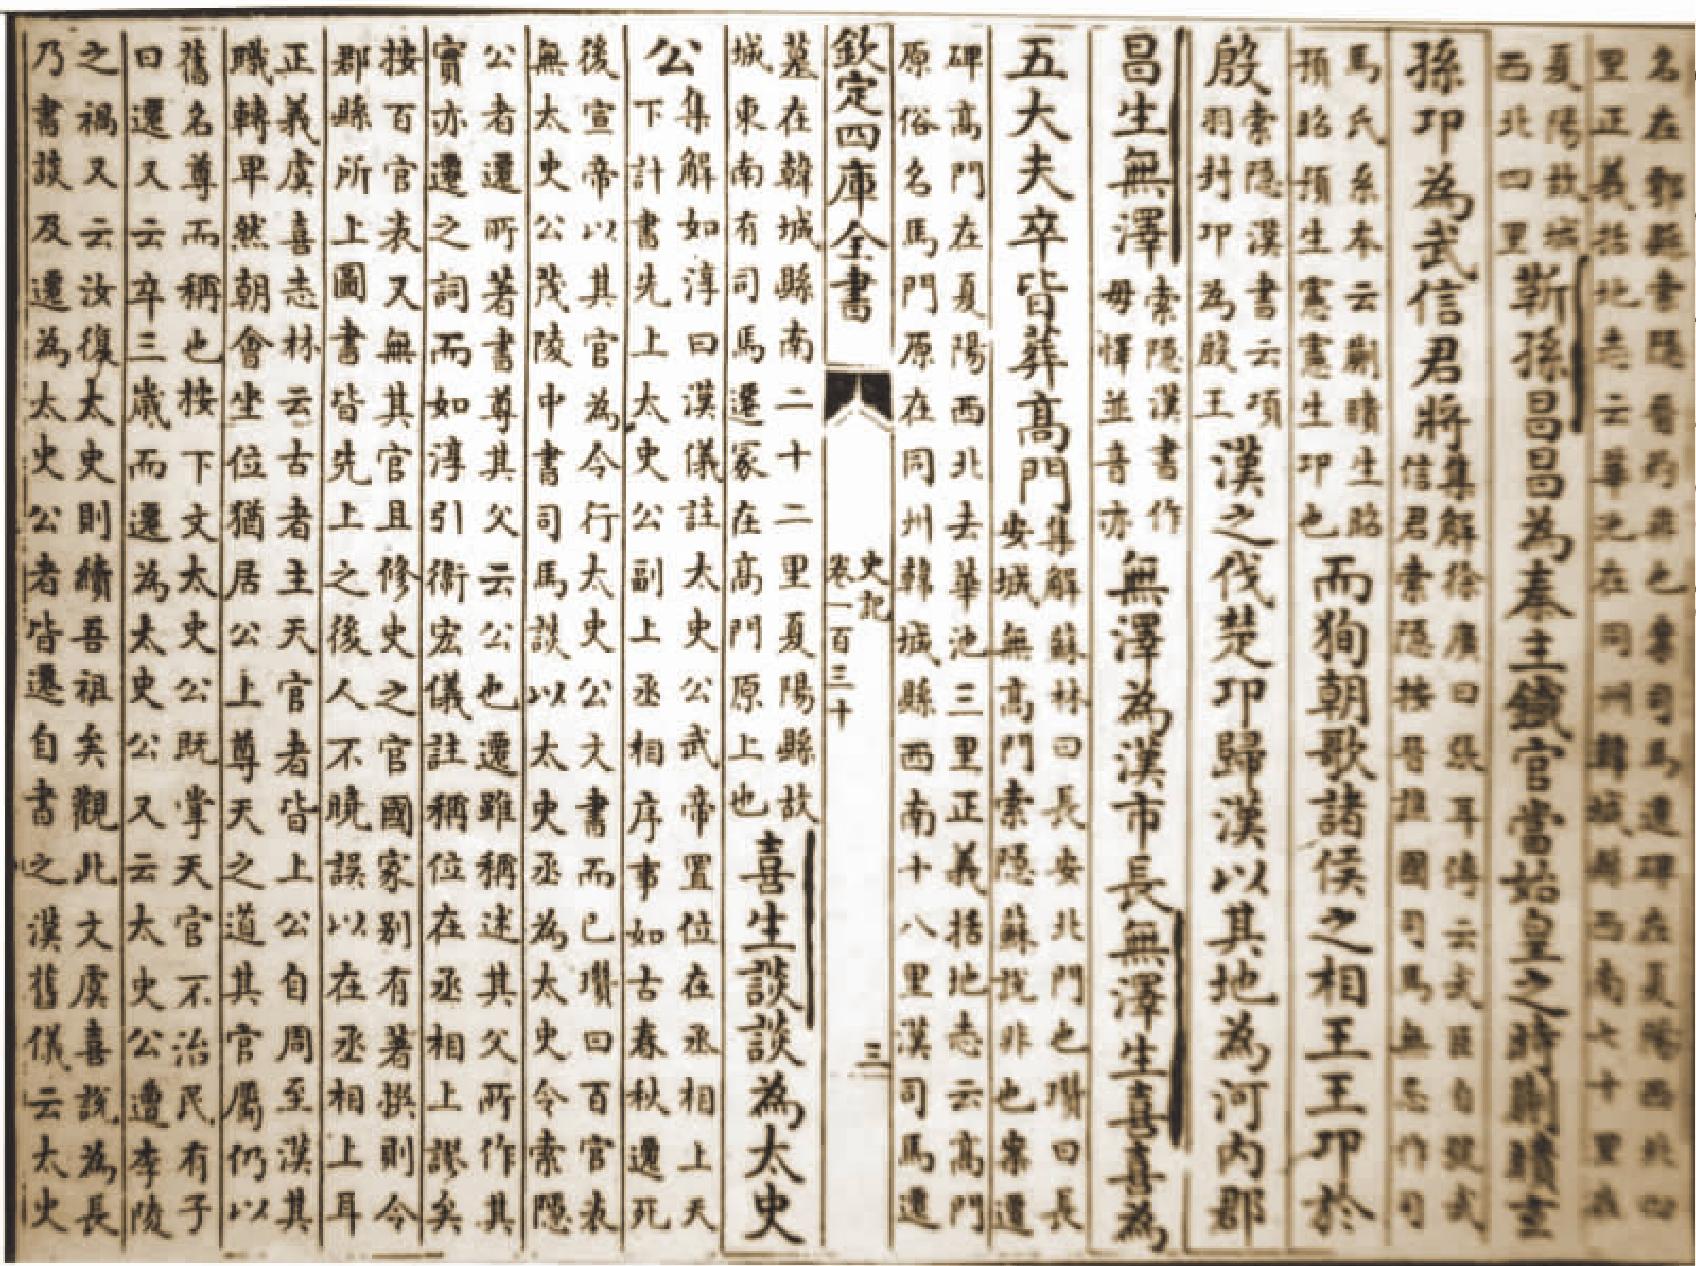 名在鄠縣索隱晉灼非也案司馬遷碑在夏陽西北四
里正義括地志云華池在同州韓城縣西南七十里在
夏陽故城
西北四里
靳孫昌昌為秦主鐵官當始皇之時蒯聵玄
孫卬為武信君將
集解徐廣曰張耳傳云武臣自號武
信君索隱按晉譙國司馬無忌作司
馬氏系本云蒯聵生昭
預昭預生憲憲生卬也
而狥朝歌諸侯之相王王卬於
殷
索隱漢書云項
羽封卬為殷王
漢之伐楚卬歸漢以其地為河内郡
昌生無澤
索隱漢書作
毋懌並音亦
無澤為漢市長無澤生喜喜為
五大夫卒皆葬髙門
集解蘇林曰長安北門也瓚曰長
安城無髙門索隱蘇說非也案遷
碑髙門在夏陽西北去華池三里正義括地志云髙門
原俗名馬門原在同州韓城縣西南十八里漢司馬遷
欽定四庫全書
史記
卷一百三十
三
墓在韓城縣南二十二里夏陽縣故
城東南有司馬遷冡在髙門原上也
喜生談談為太史
公
集解如淳曰漢儀註太史公武帝置位在丞相上天
下計書先上太史公副上丞相序事如古春秋遷死
後宣帝以其官為令行太史公文書而已瓚曰百官表
無太史公茂陵中書司馬談以太史丞為太史令索隱
公者遷所著書尊其父云公也遷雖稱述其父所作其
實亦遷之詞而如淳引衛宏儀註稱位在丞相上謬矣
按百官表又無其官且修史之官國家别有著撰則令
郡縣所上圖書皆先上之後人不曉誤以在丞相上耳
正義虞喜志林云古者主天官者皆上公自周至漢其
職轉卑然朝會坐位猶居公上尊天之道其官屬仍以
舊名尊而稱也按下文太史公既掌天官不治民有子
曰遷又云卒三歳而遷為太史公又云太史公遭李陵
之禍又云汝復太史則續吾祖矣觀此文虞喜說為長
乃書談及遷為太史公者皆遷自書之漢舊儀云太史